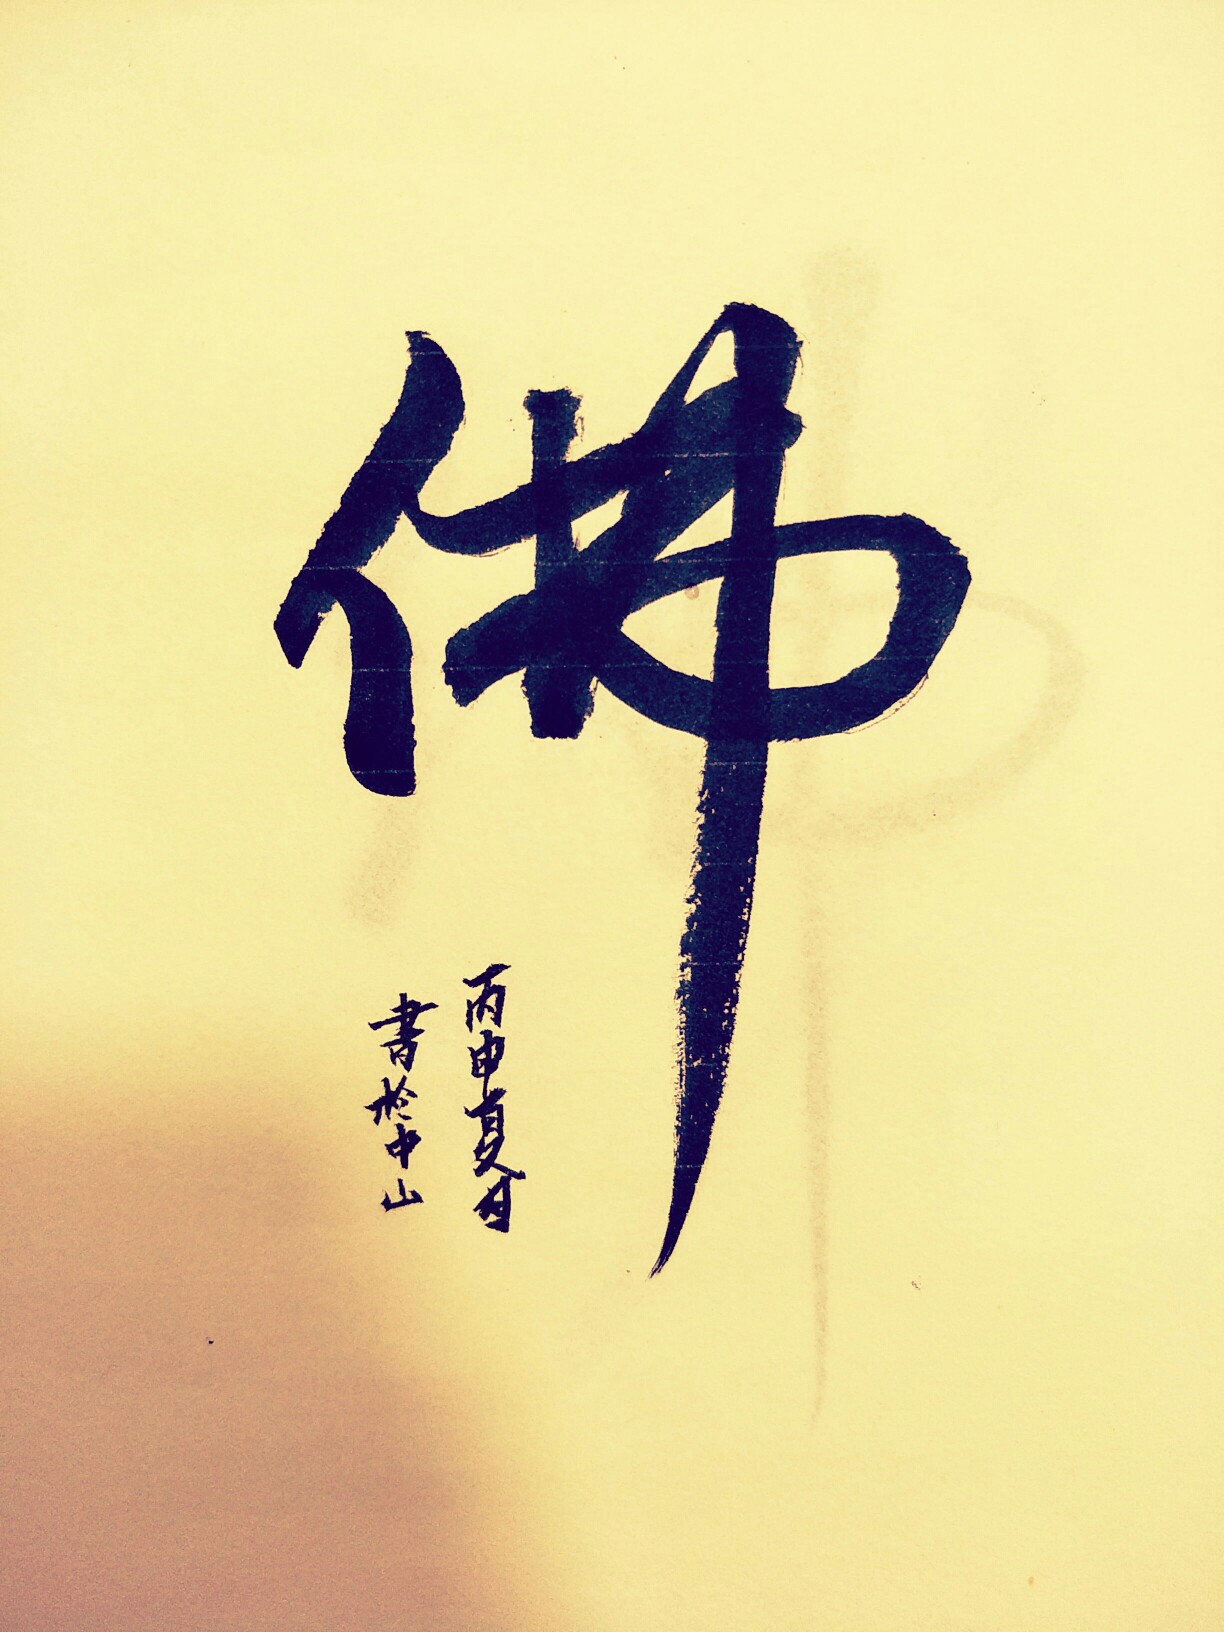 佛
丙申夏月
書於中山